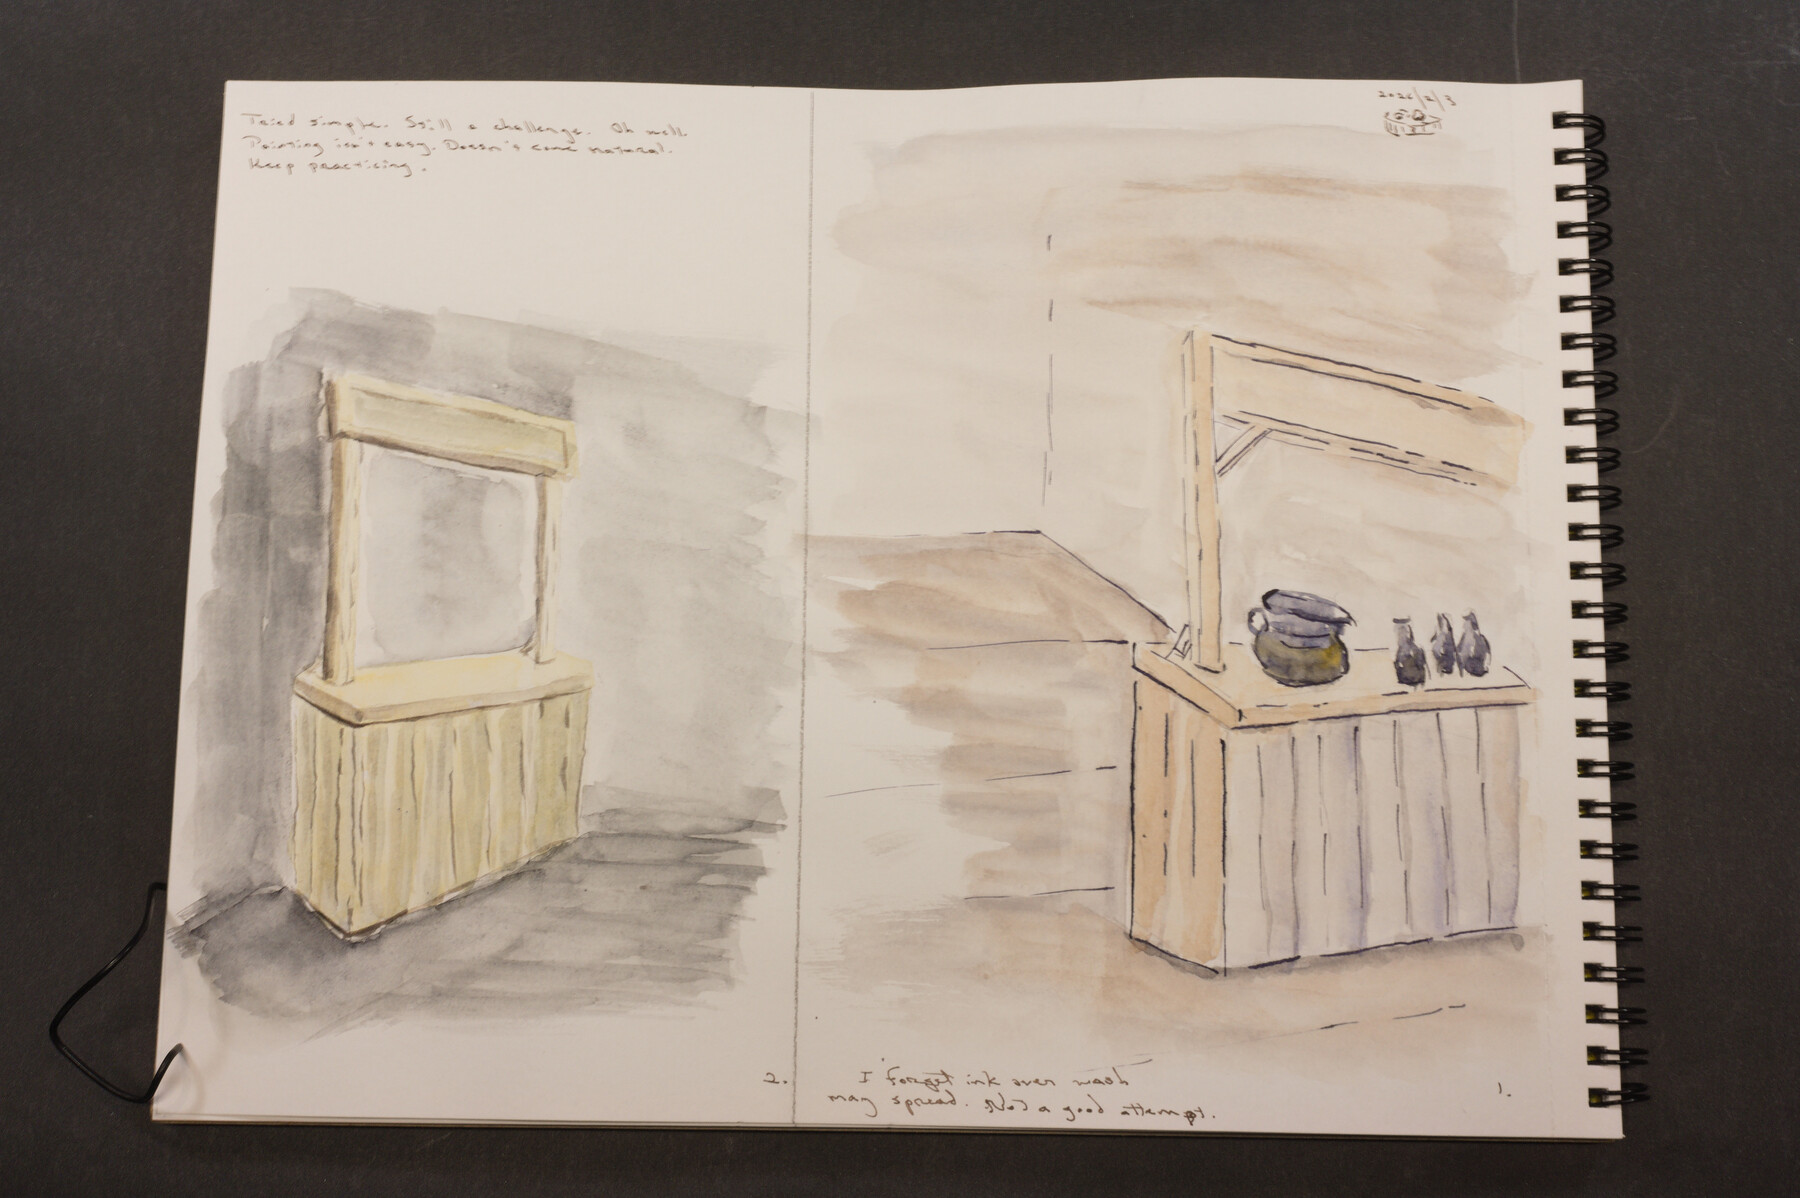 Tried simple. Still a challenge. Oh well.
Painting isn't easy. Doesn't come natural.
Keep practicing.
2026/2/3
2.
I forget ink over wash
may spread. Not a good attempt.
1.